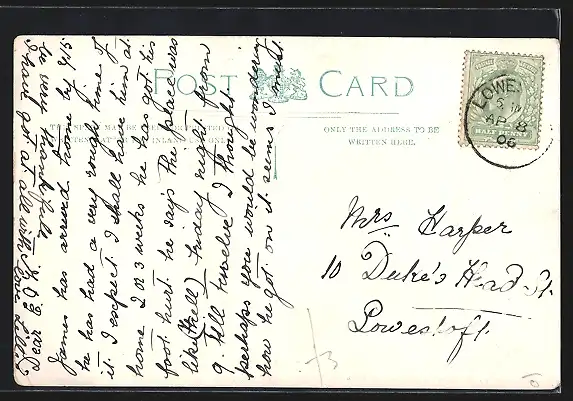 POST CARD
ONLY THE ADDRESS TO BE
WRITTEN HERE.
LOWE
AP 8
06
HALF PENNY
Mrs Harper
10 Duke's Head St
Lowestoft
Dear
James has arrived home by 9/5
he has had a very rough time of
it. I expect I shall have him at
home 2 or 3 weeks he has got his
foot hurt he says the place was
like (Hell) Friday night from
9 till twelve I thought
perhaps you would be wondering
how he got on it seems I must
be very thankfull
I have got at all with